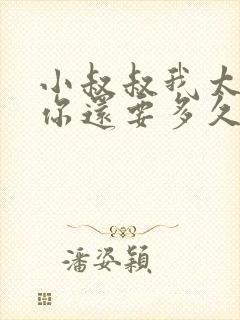 小叔叔我大
你還要多久
潘姿穎